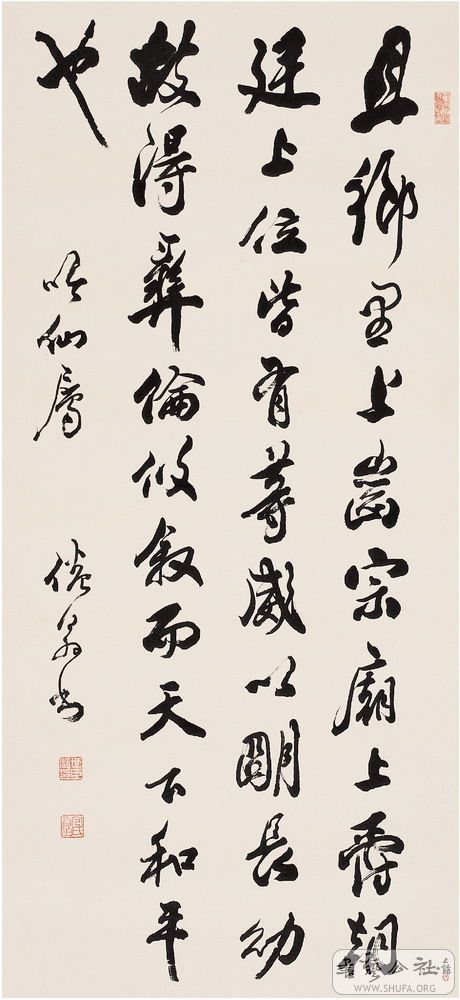 且鄉里上齒宗廟上爵朝
廷上位皆有等威以明長幼
故得彝倫攸叙而天下和平
也
仙屬
書艺公社
WWW.SHUFA.ORG